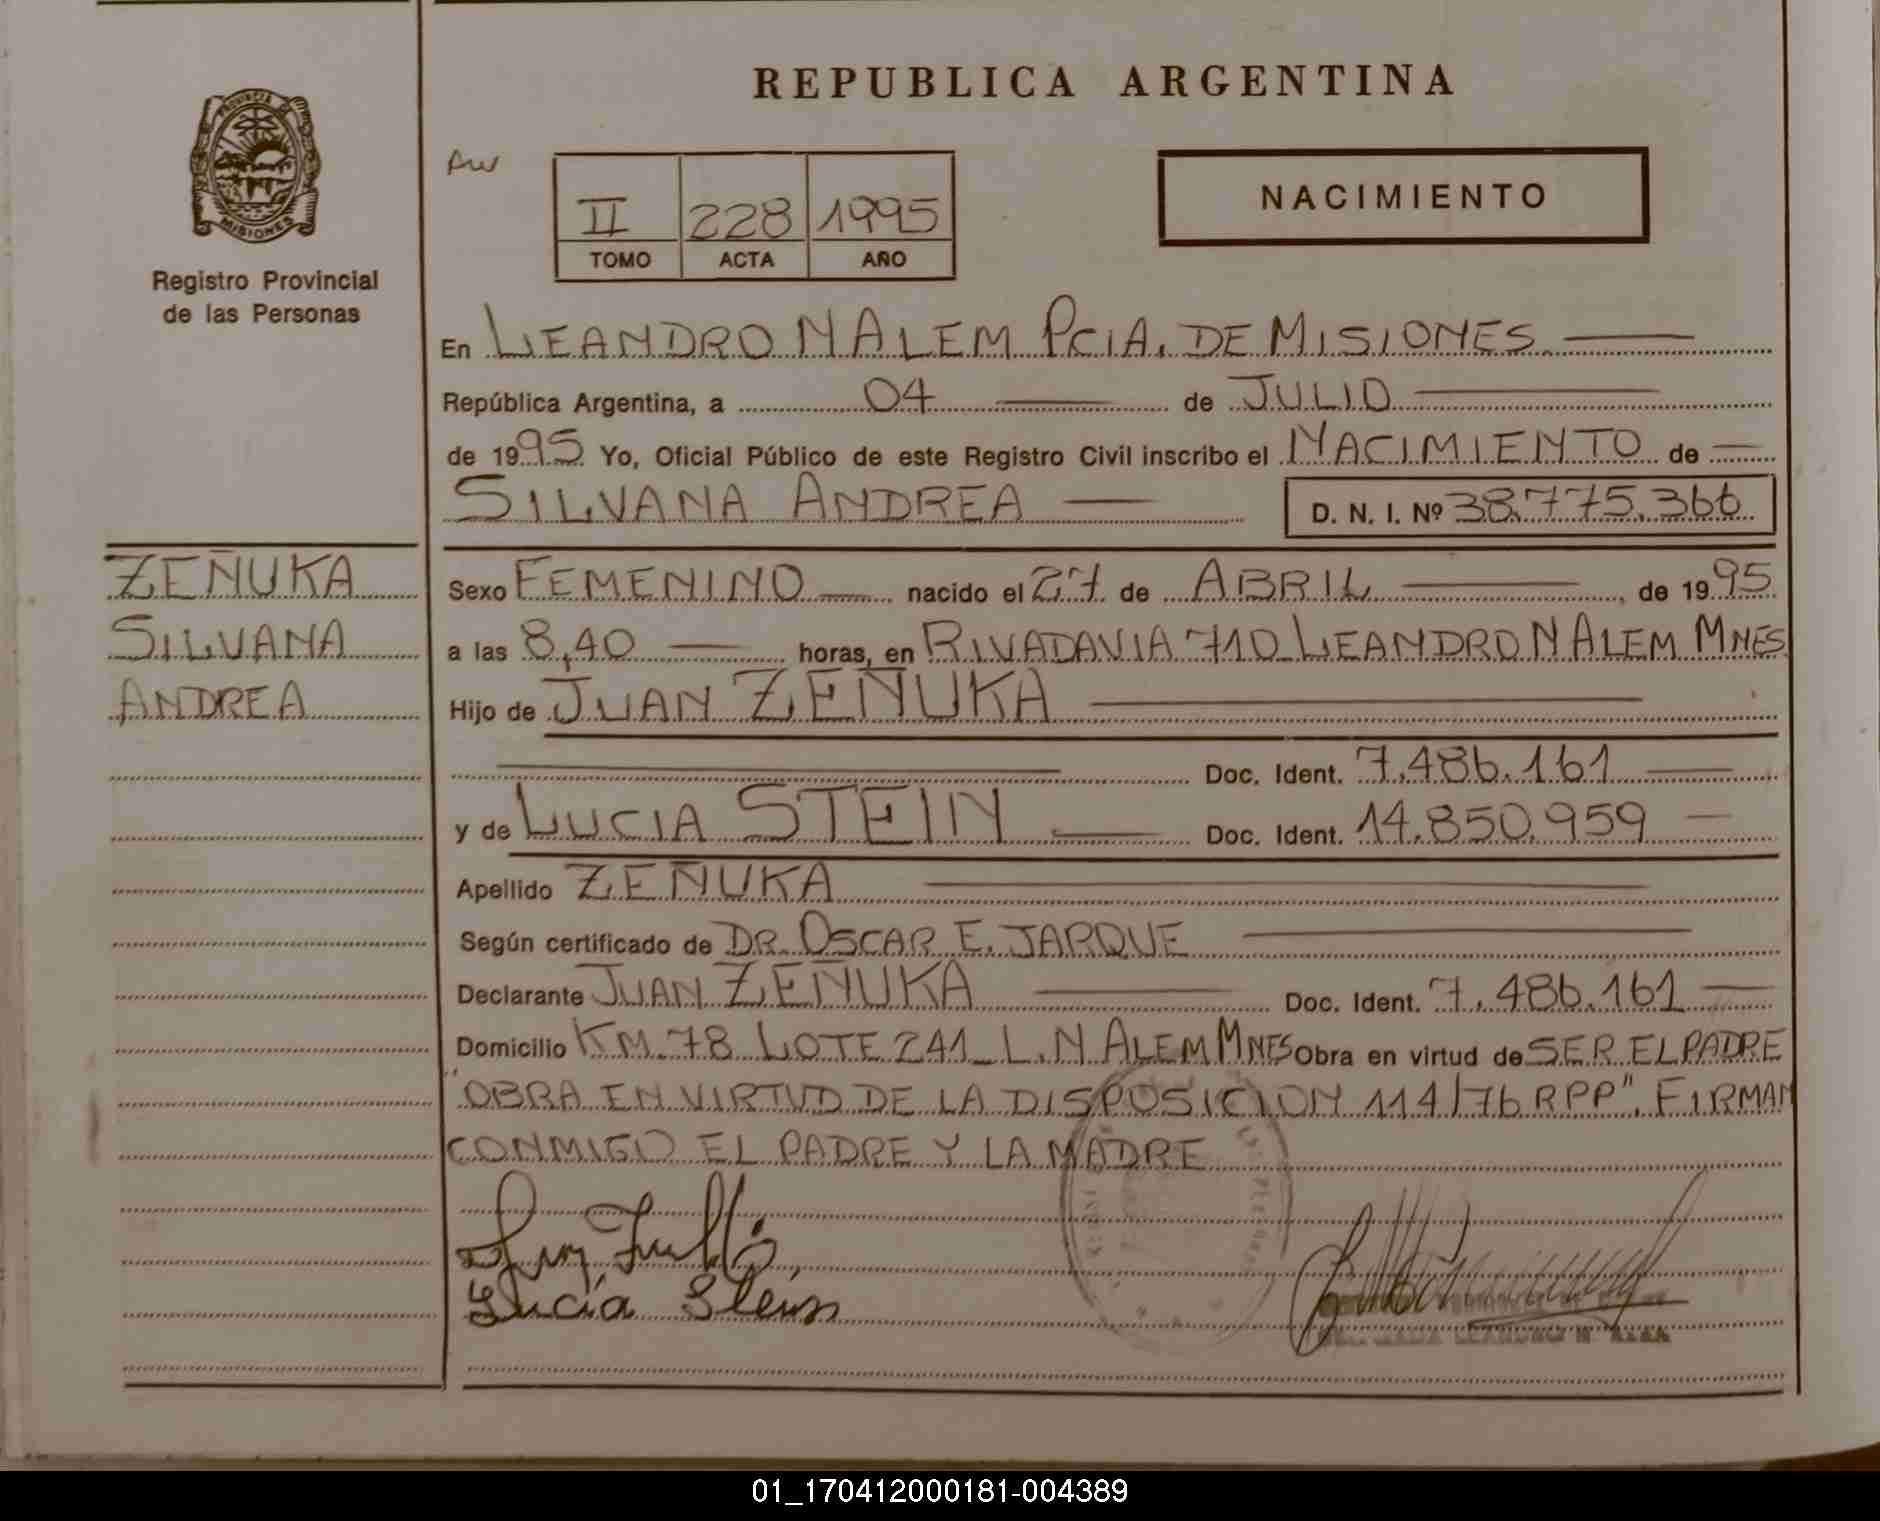 REPUBLICA ARGENTINA
PROVINCIA DE
MISIONES
Registro Provincial
de las Personas
AW
II 228 1995
TOMO ACTA AÑO
NACIMIENTO
En LEANDRO N ALEM PCIA. DE MISIONES
República Argentina, a 04 de JULIO
de 1995 Yo, Oficial Público de este Registro Civil inscribo el NACIMIENTO de
SILVANA ANDREA D. N. I. Nº 38.775.366
ZEÑUKA
SILVANA
ANDREA
Sexo FEMENINO nacido el 27 de ABRIL, de 1995
a las 8,40 horas, en RIVADAVIA 710 LEANDRO N ALEM MNES.
Hijo de JUAN ZEÑUKA
Doc. Ident. 7.486.161
y de LUCIA STEIN Doc. Ident. 14.850.959
Apellido ZEÑUKA
Según certificado de DR. OSCAR E. JARQUE
Declarante JUAN ZEÑUKA Doc. Ident. 7.486.161
Domicilio KM. 78 LOTE 241 L.N ALEM MNES Obra en virtud de SER EL PADRE
"OBRA EN VIRTUD DE LA DISPOSICION 114/76 RPP". FIRMAN
CONMIGO EL PADRE Y LA MADRE
Lucía Stein
LEANDRO N ALEM
01_170412000181-004389